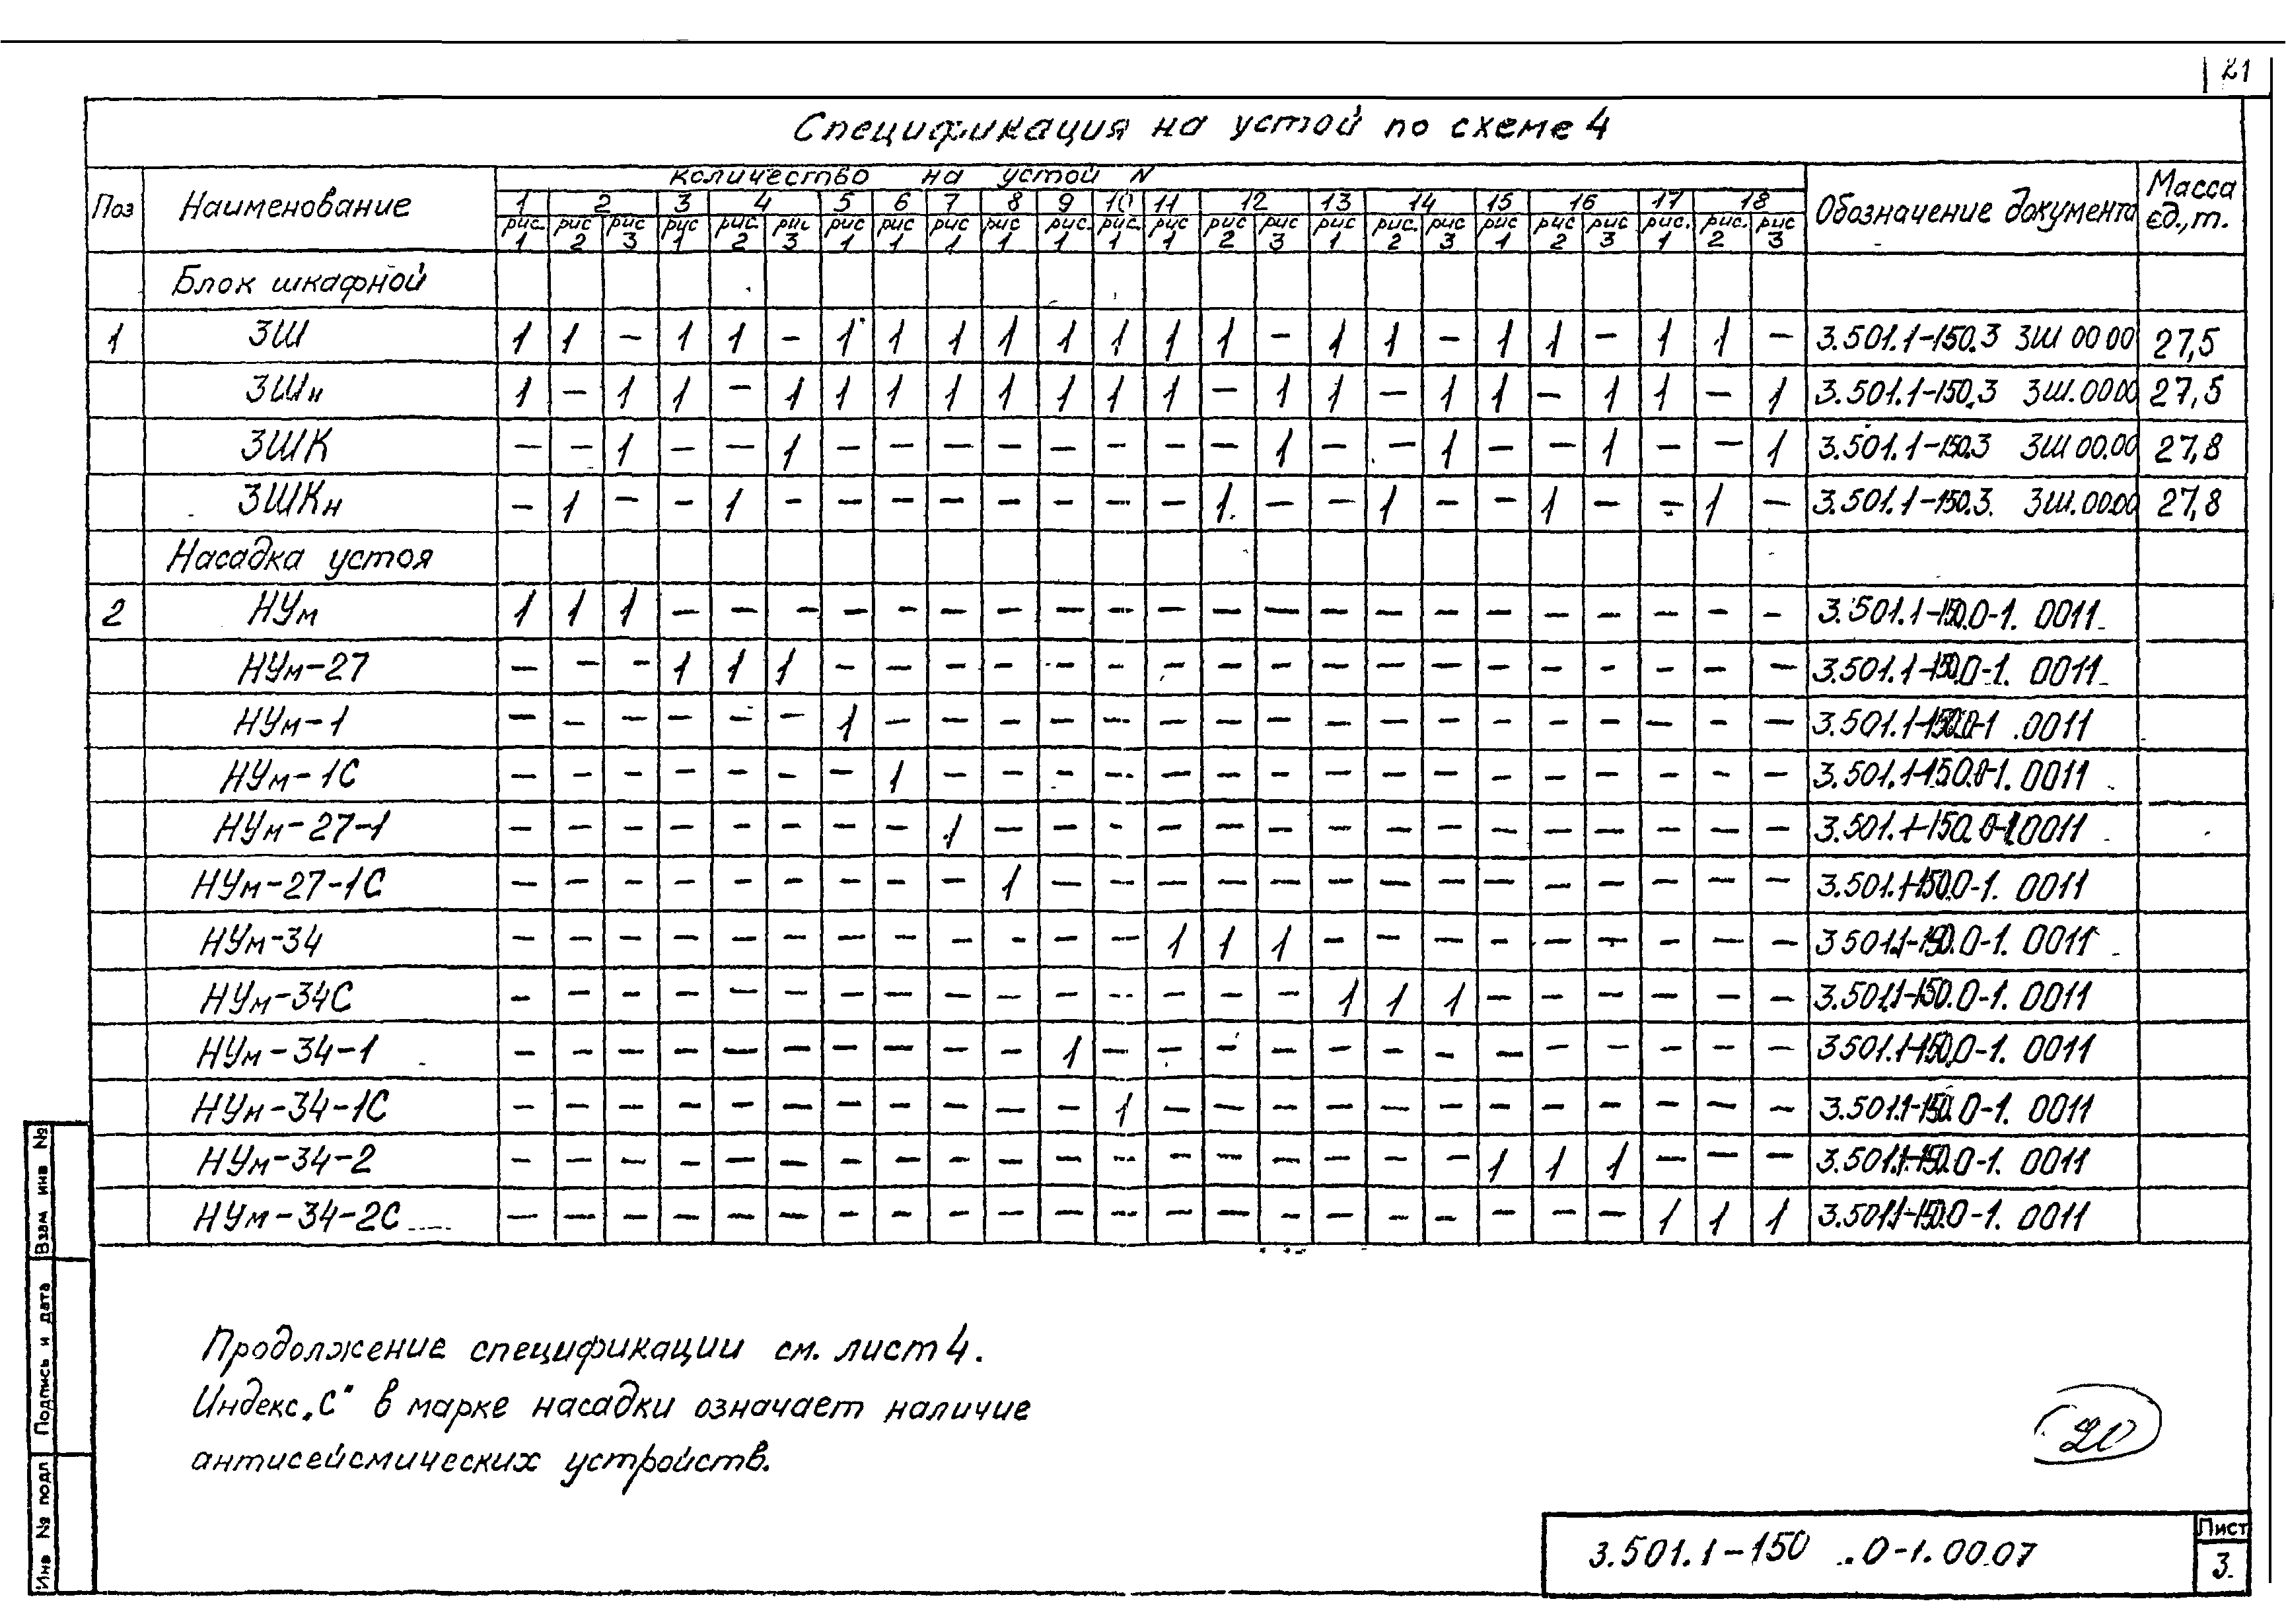 21
Спецификация на устой по схеме 4
Поз Наименование Количество на устой N Обозначение документа Масса ед., т.
1 2 3 4 5 6 7 8 9 10 11 12 13 14 15 16 17 18
рис. 1 рис 2 рис 3 рис 1 рис. 2 рис 3 рис 1 рис 1 рис 1 рис 1 рис. 1 рис. 1 рис 1 рис 2 рис 3 рис 1 рис. 2 рис 3 рис 1 рис 2 рис 3 рис. 1 рис. 2 рис 3
Блок шкафной
1 3Ш 1 1 – 1 1 – 1 1 1 1 1 1 1 1 – 1 1 – 1 1 – 1 1 – 3.501.1-150.3 3Ш 00 00 27,5
3Шн 1 – 1 1 – 1 1 1 1 1 1 1 1 – 1 1 – 1 1 – 1 1 – 1 3.501.1-150.3 3Ш.00.00 27,5
3ШК – – 1 – – 1 – – – – – – – – 1 – – 1 – – 1 – – 1 3.501.1-150.3 3Ш 00.00 27,8
3ШКн – 1 – – 1 – – – – – – – – 1 – – 1 – – 1 – – 1 – 3.501.1-150.3. 3Ш.00.00 27,8
Насадка устоя
2 НУм 1 1 1 – – – – – – – – – – – – – – – – – – – – – 3.501.1-150.0-1. 0011
НУм-27 – – – 1 1 1 – – – – – – – – – – – – – – – – – – 3.501.1-150.0-1. 0011
НУм-1 – – – – – – 1 – – – – – – – – – – – – – – – – – 3.501.1-150.0-1 .0011
НУм-1С – – – – – – – 1 – – – – – – – – – – – – – – – – 3.501.1-150.0-1. 0011
НУм-27-1 – – – – – – – – 1 – – – – – – – – – – – – – – – 3.501.1-150.0-1.0011
НУм-27-1С – – – – – – – – – 1 – – – – – – – – – – – – – – 3.501.1-150.0-1. 0011
НУм-34 – – – – – – – – – – – – 1 1 1 – – – – – – – – – 3.501.1-150.0-1. 0011
НУм-34С – – – – – – – – – – – – – – – 1 1 1 – – – – – – 3.501.1-150.0-1. 0011
НУм-34-1 – – – – – – – – – – 1 – – – – – – – – – – – – – 3.501.1-150.0-1. 0011
НУм-34-1С – – – – – – – – – – – 1 – – – – – – – – – – – – 3.501.1-150.0-1. 0011
НУм-34-2 – – – – – – – – – – – – – – – – – – 1 1 1 – – – 3.501.1-150.0-1. 0011
НУм-34-2С – – – – – – – – – – – – – – – – – – – – – 1 1 1 3.501.1-150.0-1. 0011
Продолжение спецификации см. лист 4.
Индекс „С" в марке насадки означает наличие
антисейсмических устройств.
20
Взам инв №
Подпись и дата
Инв № подл
3.501.1-150 .0-1.00.07
Лист
3.